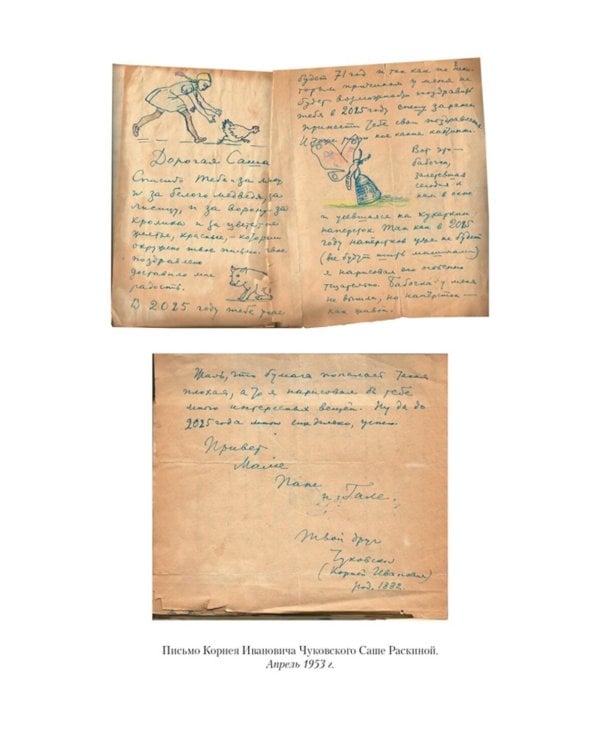 Дорогая Саша
Спасибо тебе и за
и за белого медведя, за
лисицу, и за ворону, за
кролика и за цветы
желтые, красные, — которыми
окружено твое письмо. Твое
поздравление
доставило мне
радость.
В 2025 году тебе уже
будет 71 год и так как по неко-
торым причинам у меня не
будет возможности поздравить
тебя в 2025 году спешу заранее
принести тебе свои поздравления
И кое какие картинки.
Вот это —
бабочка,
залетевшая
сегодня к
нам в окно
и усевшаяся на кухаркин
наперсток. Так как в 2025
году наперстков уже не будет
(все будут шить машинами)
я нарисовал его особенно
тщательно. Бабочка у меня
не вышла, но наперсток —
как живой.
Жаль, что бумага попалась такая
плохая, а то я нарисовал бы тебе
много интересных вещей. Ну да до
2025 года успею.
Привет
Маме
Папе
и Гале.
Твой друг
Чуковский
(Корней Иванович)
род. 1882.
Письмо Корнея Ивановича Чуковского Саше Раскиной.
Апрель 1953 г.